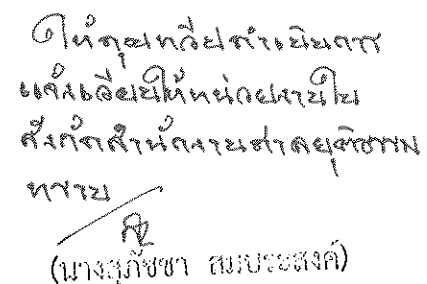 ให้คุณทวีปดำเนินการ
แจ้งเวียนให้หน่วยงานใน
สังกัดสำนักงานศาลยุติธรรม
ทราบ
(นางสุภัชชา สมประสงค์)